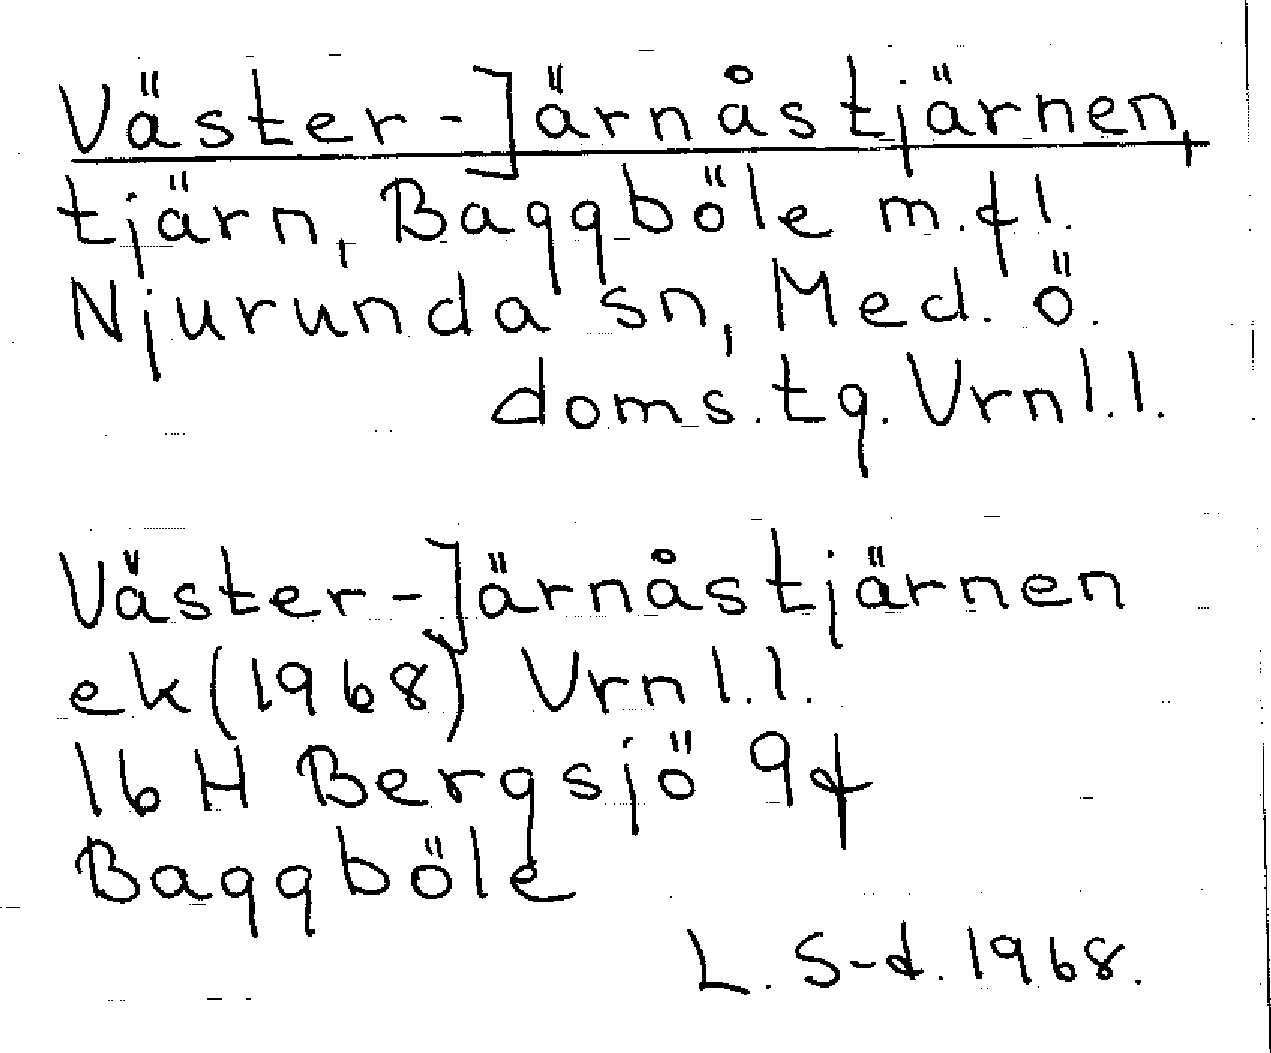 Väster-Järnåstjärnen,
tjärn, Baggböle m.fl.
Njurunda sn, Med. ö.
doms.tg. Vrnl.l.
Väster-Järnåstjärnen
ek(1968) Vrnl.l.
16 H Bergsjö 9f
Baggböle
L. S-d. 1968.